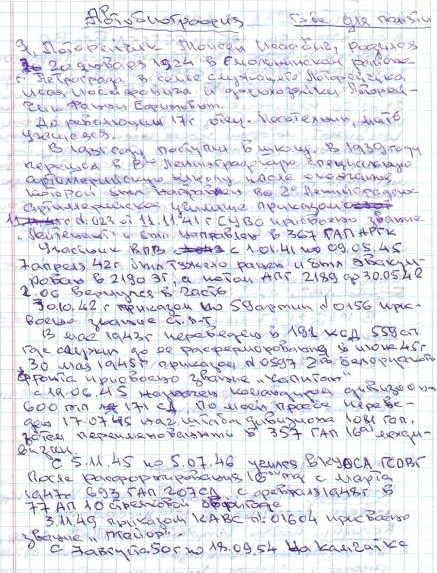 Автобиография Себе для памяти
Я, Погорельчик Моисей Исаевич, родился
20 января 1924 в Смольнинском районе
г. Петрограда в семье служащего Погорельчика
Исая Иосифовича и домохозяйки Погорель-
чик Фани Ефимовны.
До революции 17г. отец , мать
учащаяся.
В 1931 году поступил в школу. В 1939 году
перешел в Ленинградскую специальную
артиллерийскую школу после окончания
которой был направлен во 2е Ленинградское
артиллерийское училище приказом
№ 023 от 11.11.41г СУВО присвоено звание
"лейтенант" и был направлен в 367 ГАП АРГК
Участник ВОВ с 1.01.41 по 09.05.45
7 апреля 42г. был тяжело ранен и был эвакуи-
рован в 2190 ЭГ, а потом АПГ 2189 до 30.05.42
2.06 вернулся в часть
30.10.42 г приказом по 59 армии №0156 прис-
воено звание ст. л-т.
В мае 1943г переведен в 191 КСД 559 сп.
где служил до ее расформирования в июне 45г
30 мая 1945г приказом №0597 2го Белорусского
фронта присвоено звание "капитан"
с 19.06.45 назначен командиром дивизиона
600 171 сд По моей просьбе переве-
ден 17.07.45 нач. штаба дивизиона
затем переименованный в 357 ГАП 16й мехди-
визии
С 5.11.45 по 5.07.46 учился в КУОСА ГСОВГ
После расформирования 16 с марта
1947г 693 ГАП 207СД с февраля 1948г в
77 АП 10 стрелковой бригаде
3.11.49 приказом КАВС №01604 присвоено
звание "майор".
С 7 августа 50г по 18.09.54 на Камчатке